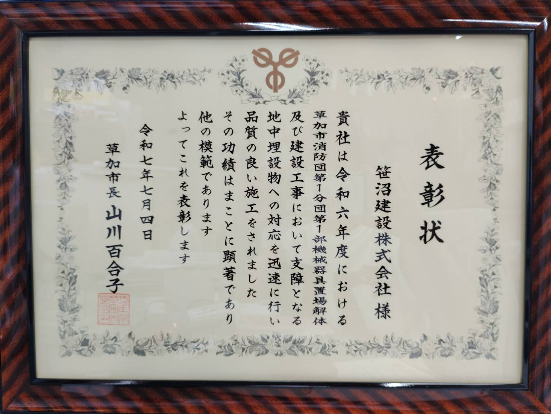 表彰状
笹沼建設株式会社 様
貴社は令和六年度における
草加市消防団第1分団第1部機械器具置場解体
及び建設工事において支障となる
地中埋設物への対応を迅速に行い
品質の良い施工をされました
その功績はまことに顕著であり
他の模範であります
よってこれを表彰します
令和七年七月四日
草加市長 山川百合子